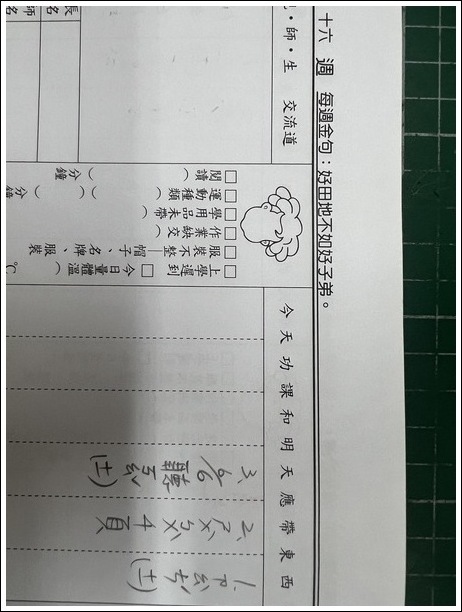 十六 週 每週金句：好田地不如好子弟。
師・生 交流道
長名
師名
今天功課和明天應帶東西
1. (十一)
2. 4頁
3. 聽 (十一)
□上學遲到 □今日量體溫（ ℃
□服裝不整—帽子、名牌、服裝
□作業缺交（
□學用品未帶（
□運動種類（ ）（ 分鐘
□閱讀（ 分鐘